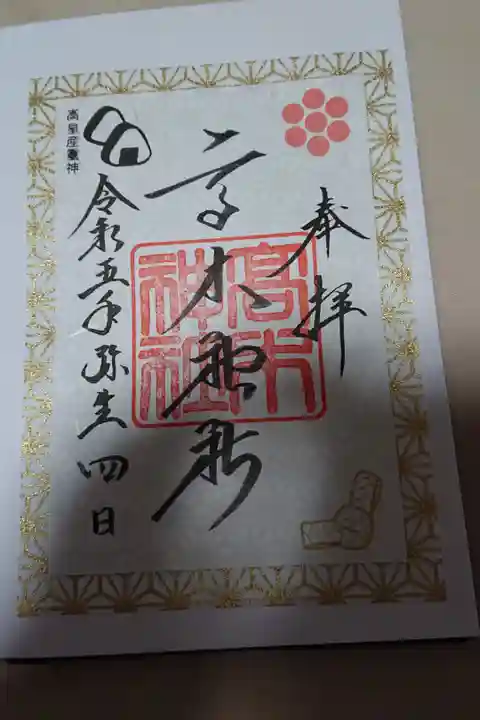 奉拝
高木神社
高木神社
高皇産霊神
令和五年弥生四日